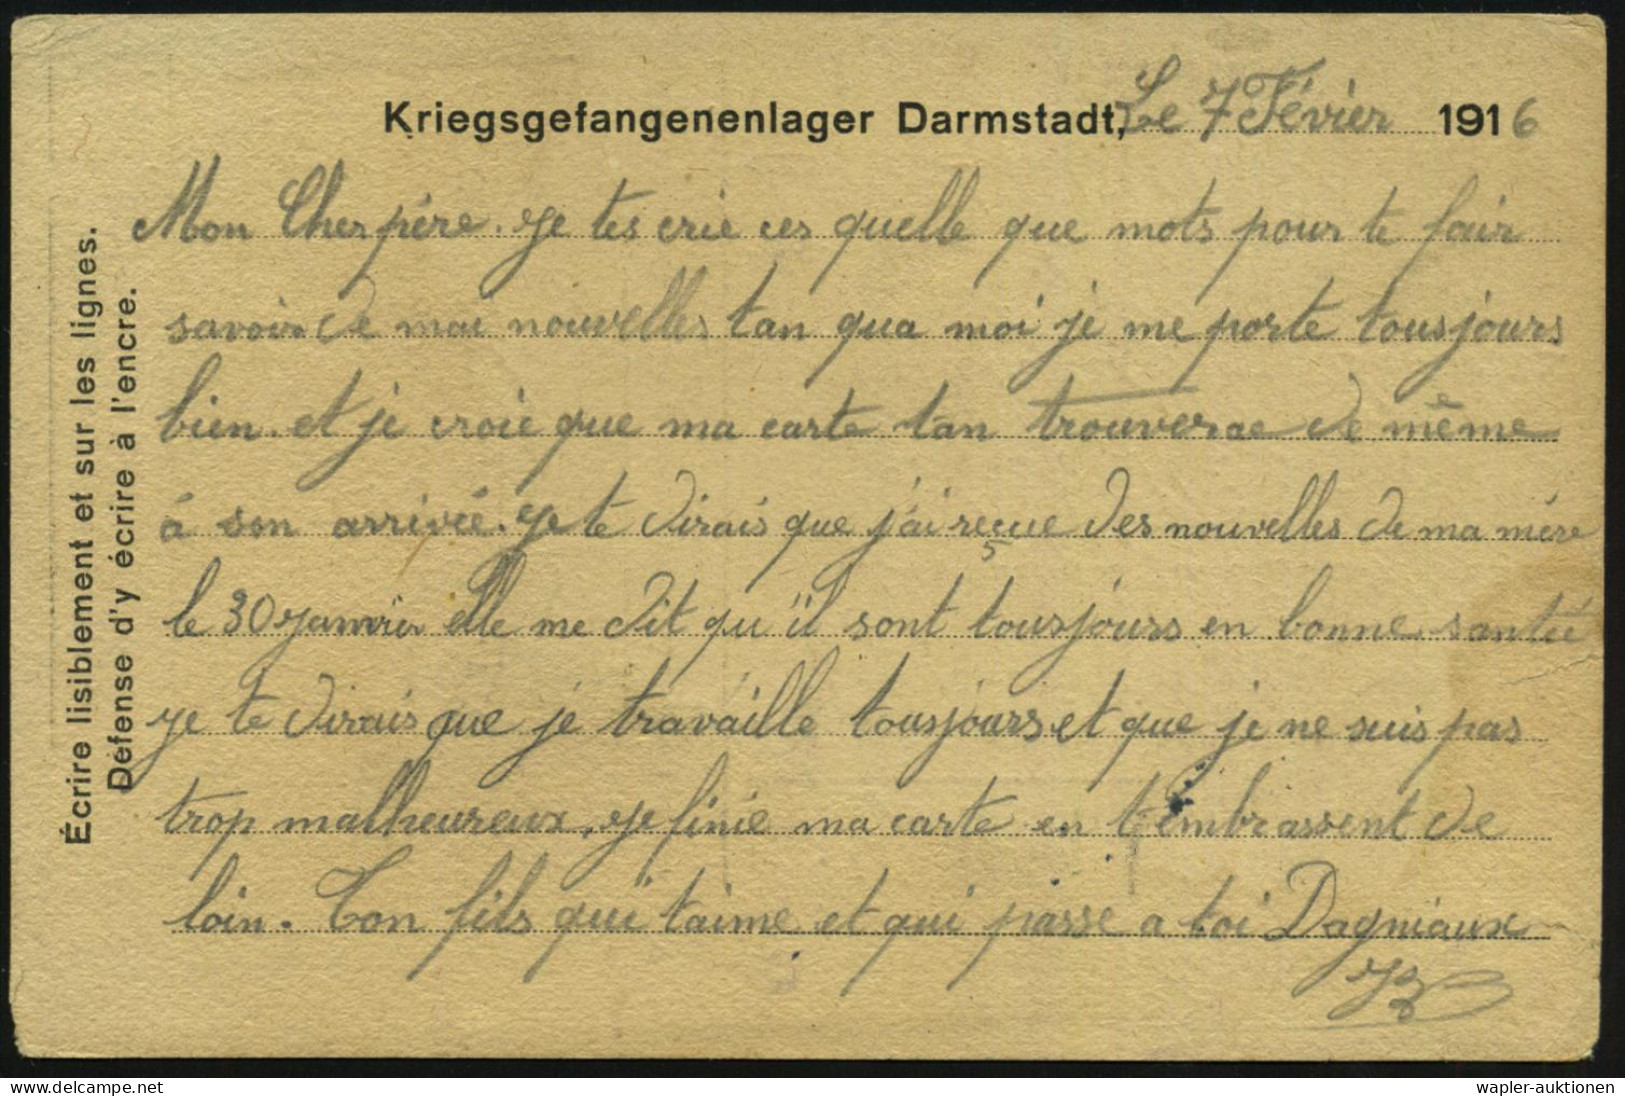 Kriegsgefangenenlager Darmstadt, Le 7 Févier 1916
Écrire lisiblement et sur les lignes.
Défense d'y écrire à l'encre.
Mon Cher père. je tes crie ces quelle que mots pour te fair
savoir de mai nouvelles tan qua moi je me porte tousjours
bien. et je croie que ma carte tan trouverae de même
à son arrivée. je te dirais que j'ai reçue des nouvelles de ma mére
le 30 janvier elle me dit qu'il sont tousjours en bonne santé
je te dirais que je travaille tousjours et que je ne suis pas
trop malheureux, je finie ma carte en t'embrassent de
loin. Ton fils qui t'aime et qui passe a toi Dagniaux
delcampe.net
wapler-auktionen